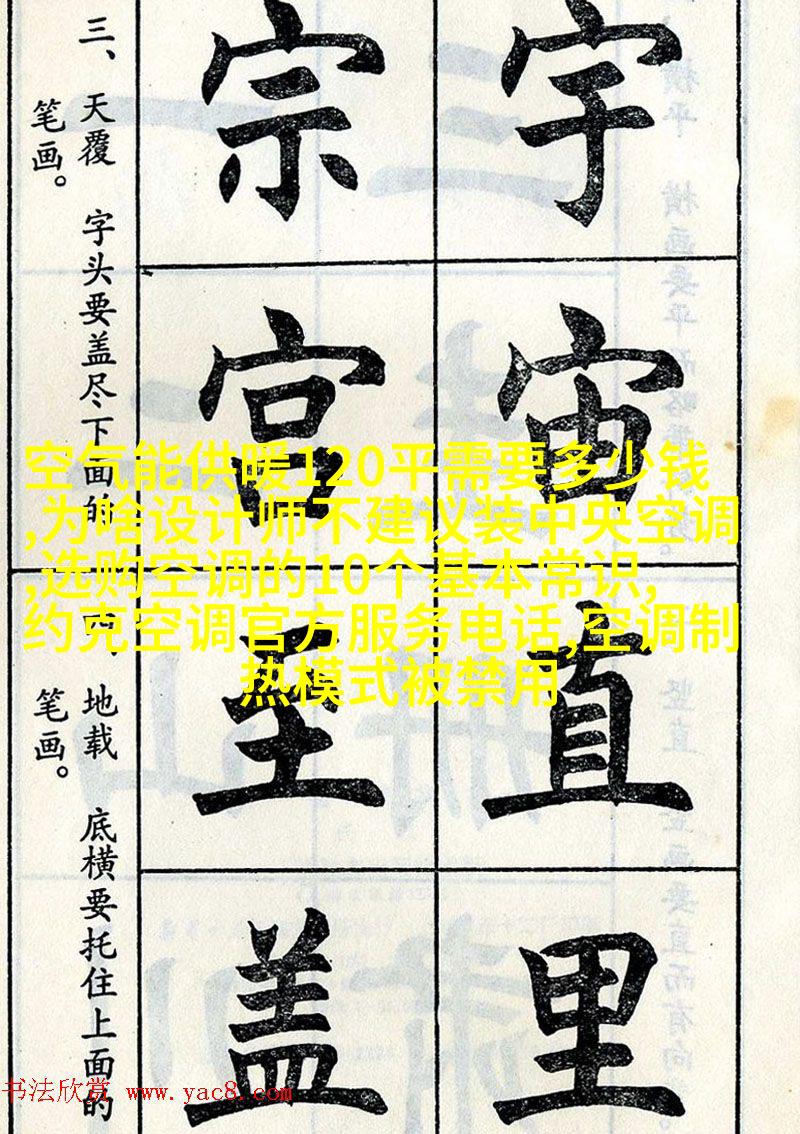 宇
宙
直
里
宗
宫
至
盖
三、天覆 字头要盖尽下面的
笔画。
四、地载 底横要托住上面的
笔画。
空气能供暖120平需要多少钱
,为啥设计师不建议装中央空调
,选购空调的10个基本常识,
约克空调官方服务电话,空调制
热模式被禁用
书法欣赏 www.yac8.com